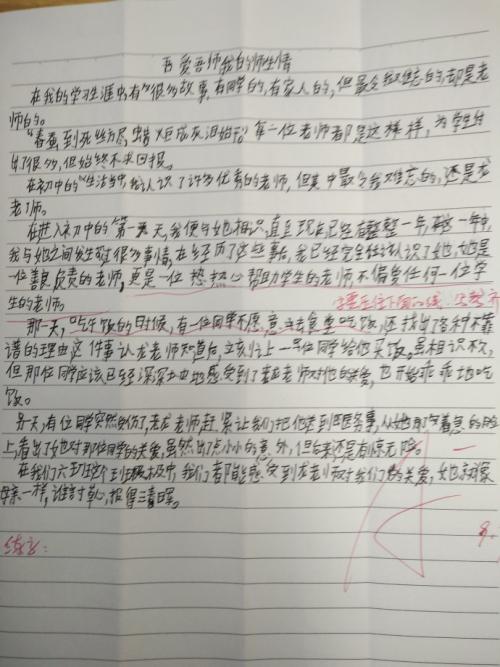 吾爱吾师我的师生情
在我的学习生涯中,有很多故事,有同学的,有家人的,但最令我难忘的,却是老
师的。
"春蚕到死丝方尽,蜡炬成灰泪始干"每一位老师都是这样,为学生付
出了很多,但始终不求回报。
在初中的生活当中,我认识了许多优秀的老师,但其中最令我难忘的,还是龙
老师。
在进入初中的第一天,我便与她相识,直到现在已经有整整一年,在这一年中,
我与她之间发生过很多事情,在经历了这些事后,我已经完全认识了她,她是
一位善良,负责的老师,更是一位热心帮助学生的老师,不偏爱任何一位学
生的老师。
那一天,吃午饭的时候,有一位同学不愿意去食堂吃饭,还找出了各种不靠
谱的理由,这件事让龙老师知道后,立刻让一位同学给他买饭,虽相识不久,
但那位同学应该已经深深地感受到了龙老师对他的关爱,也开始乖乖地吃
饭。
另一天,有位同学突然受伤了,龙老师赶紧让我们把他送到医务室,从她那着急的脸
上看出了她对那位同学的关爱,虽然出了点小小的意外,但后来还是有惊无险。
在我们六班这个班级中,我们都能感受到龙老师对我们的关爱,她就像
母亲一样,谁言寸草心,报得三春晖。
练字: